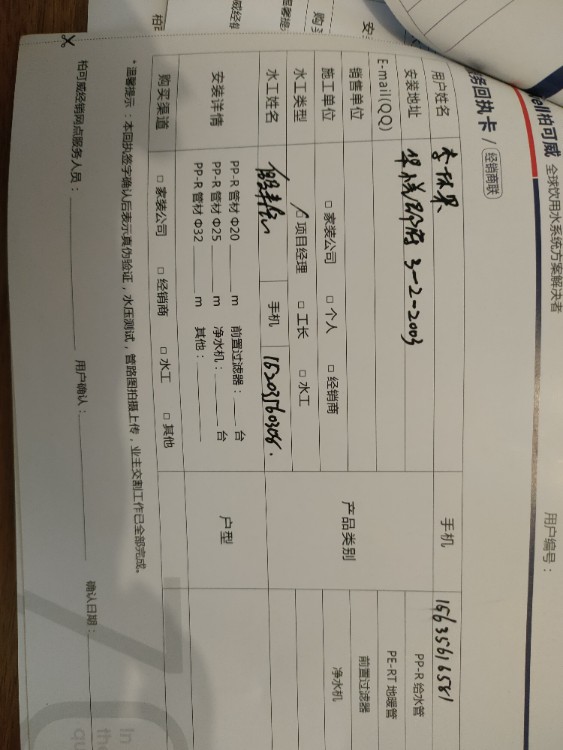 ell柏可威 全球饮用水系统方案解决者
务回执卡 / 经销商联
用户编号：
用户姓名
手机 15635616581
安装地址 3-2-2003
E-mail(QQ)
销售单位
产品类别
PP-R 给水管
PE-RT 地暖管
前置过滤器
净水机
施工单位 □ 家装公司 □ 个人 □ 经销商
水工类型 □ 项目经理 □ 工长 □ 水工
水工姓名
手机
安装详情
PP-R 管材 Φ20 m 前置过滤器： 台
PP-R 管材 Φ25 m 净水机： 台
PP-R 管材 Φ32 m 其他：
户型
购买渠道 □ 家装公司 □ 经销商 □ 水工 □ 其他
*温馨提示：本回执签字确认后表示真伪验证，水压测试，管路图拍摄上传，业主交割工作已全部完成。
柏可威经销网点服务人员： 用户确认： 确认日期：